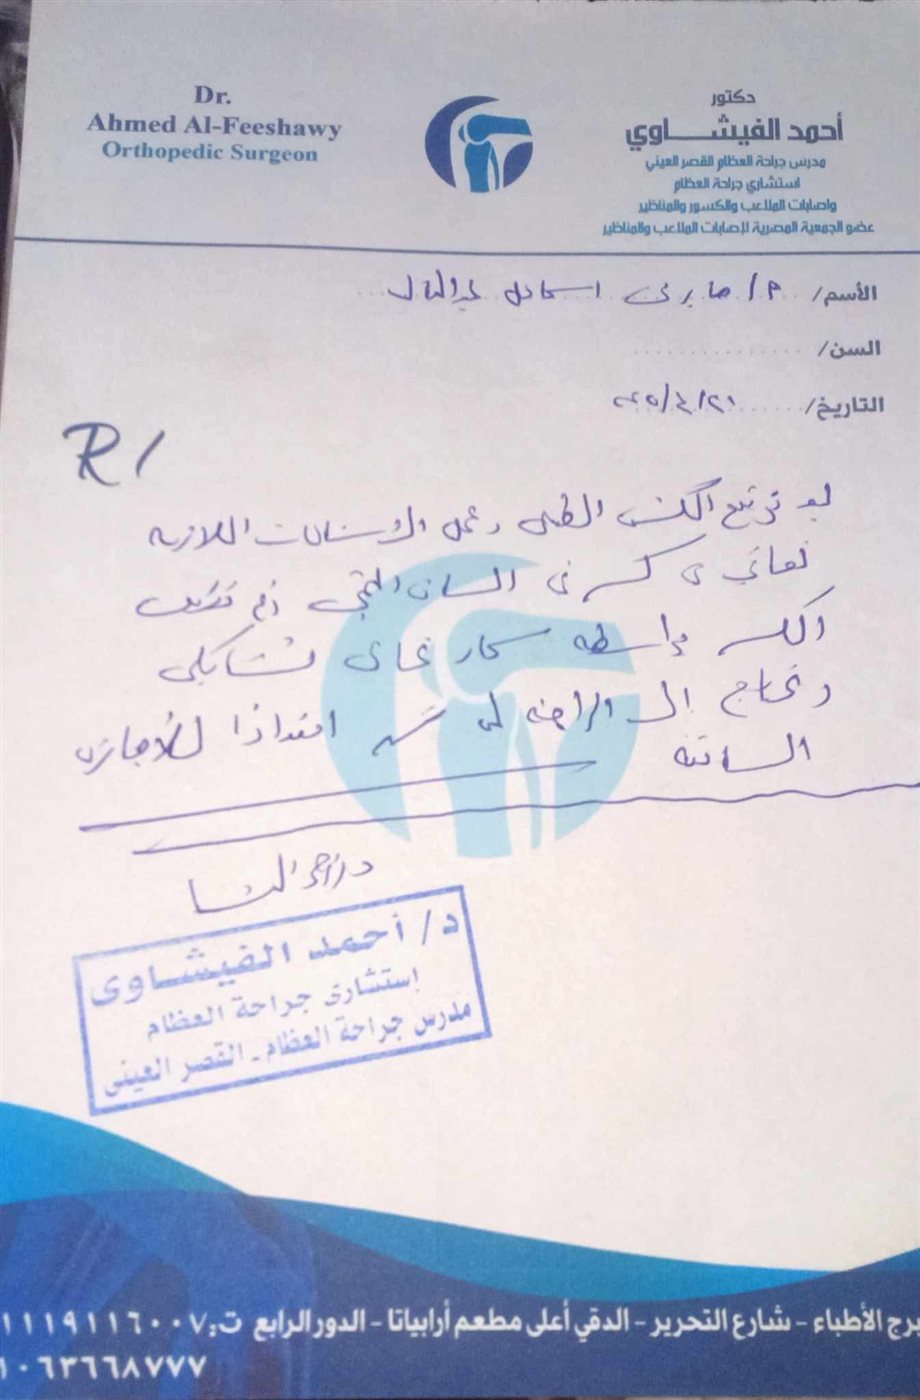 Dr.
Ahmed Al-Feeshawy
Orthopedic Surgeon
دكتور
أحمد الفيشاوي
مدرس جراحة العظام القصر العيني
استشاري جراحة العظام
واصابات الملاعب والكسور والمناظير
عضو الجمعية المصرية لإصابات الملاعب والمناظير
الأسم/ م/ صابرين اسماعيل عبدالعال
السن/
التاريخ/ ٢١/٤/
R/
بعد توقيع الكشف الطبى وعمل الاشعات اللازمه
تعانى من كسر فى الساق اليمنى وتم تثبيت
الكسر بواسطه مسمار نخاعى تشابكى
وتحتاج الى الراحه لمده شهر امتدادا للأجازه
السابقه
د/ أحمد الفيشاوى
إستشارى جراحة العظام
مدرس جراحة العظام - القصر العينى
برج الأطباء - شارع التحرير - الدقي أعلى مطعم أرابياتا - الدور الرابع ت: ١١١٩١١٦٠٠٧
١٠٦٣٦٦٨٧٧٧